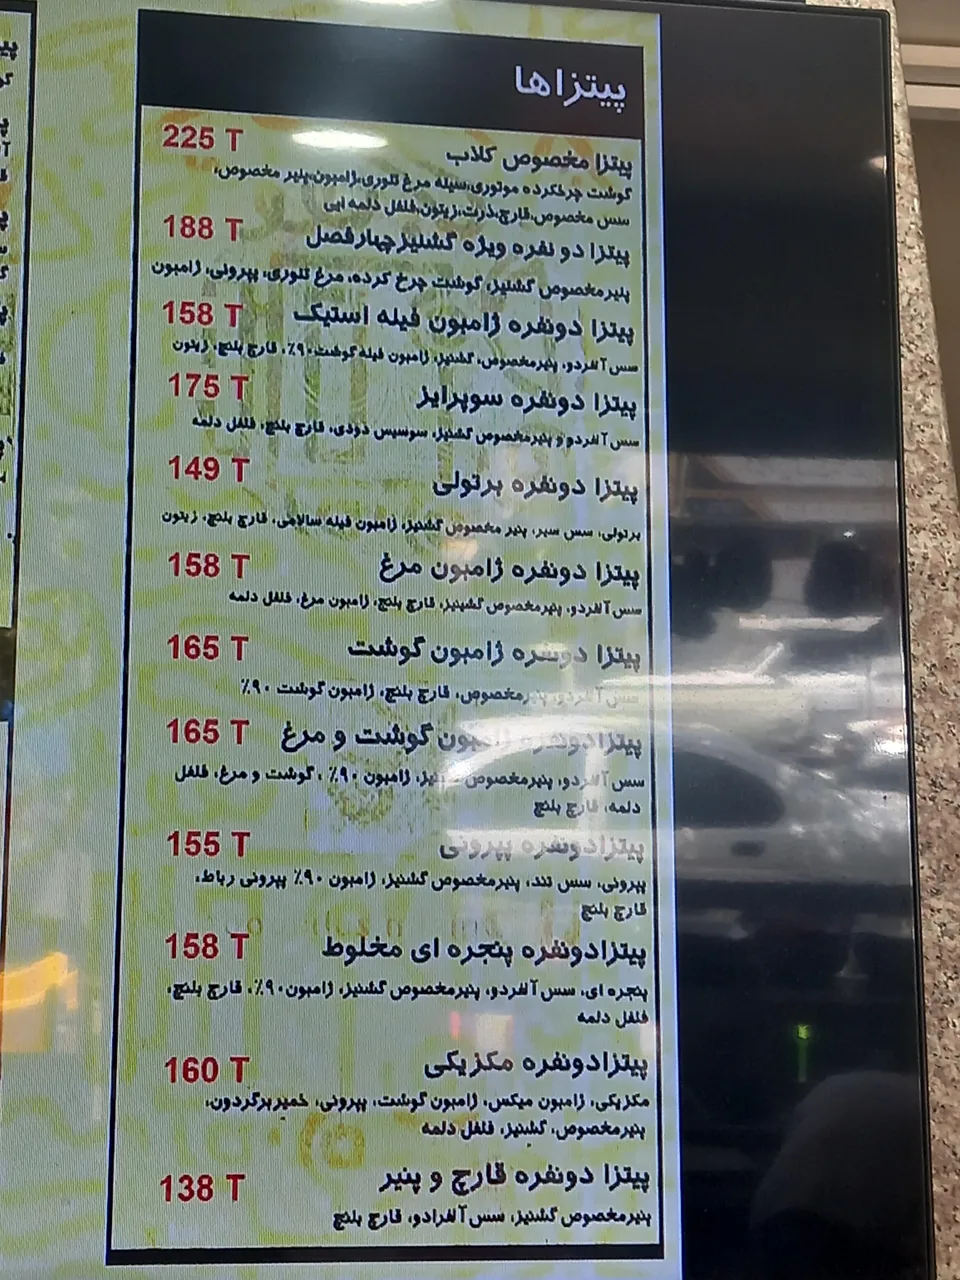 پیتزاها
پیتزا مخصوص کلاب 225 T
گوشت چرخکرده موتوری،سیله مرغ تنوری،ژامبون،پنیر مخصوص،
سس مخصوص،قارچ،ذرت،زیتون،فلفل دلمه ایی
پیتزا دو نفره ویژه گشنیزچهارفصل 188 T
پنیرمخصوص گشنیز، گوشت چرخ کرده، مرغ تنوری، پپرونی، ژامبون
پیتزا دونفره ژامبون فیله استیک 158 T
سس آلفردو، پنیرمخصوص، گشنیز، ژامبون فیله گوشت۹۰٪، قارچ بلنچ، زیتون
پیتزا دونفره سوپرایز 175 T
سس آلفردو و پنیرمخصوص گشنیز، سوسیس دودی، قارچ بلنچ، فلفل دلمه
پیتزا دونفره برتولی 149 T
برتولی، سس سیر، پنیر مخصوص گشنیز، ژامبون فیله سالامی، قارچ بلنچ، زیتون
پیتزا دونفره ژامبون مرغ 158 T
سس آلفردو، پنیرمخصوص گشینیز، قارچ بلنچ، ژامبون مرغ، فلفل دلمه
پیتزا دونفره ژامبون گوشت 165 T
سس آلفردو، پنیرمخصوص، قارچ بلنچ، ژامبون گوشت ۹۰٪
پیتزادونفره ژامبون گوشت و مرغ 165 T
سس آلفردو، پنیرمخصوص گشنیز، ژامبون ۹۰٪ ، گوشت و مرغ، فلفل
دلمه، قارچ بلنچ
پیتزادونفره پپرونی 155 T
پپرونی، سس تند، پنیرمخصوص گشنیز، ژامبون ۹۰٪ پپرونی رباط،
قارچ بلنچ
پیتزادونفره پنجره ای مخلوط 158 T
پنجره ای، سس آلفردو، پنیرمخصوص گشنیز، ژامبون۹۰٪، قارچ بلنچ،
فلفل دلمه
پیتزادونفره مکزیکی 160 T
مکزیکی، ژامبون میکس، ژامبون گوشت، پپرونی، خمیربرگردون،
پنیرمخصوص، گشنیز، فلفل دلمه
پیتزا دونفره قارچ و پنیر 138 T
پنیرمخصوص گشنیز، سس آلفرادو، قارچ بلنچ